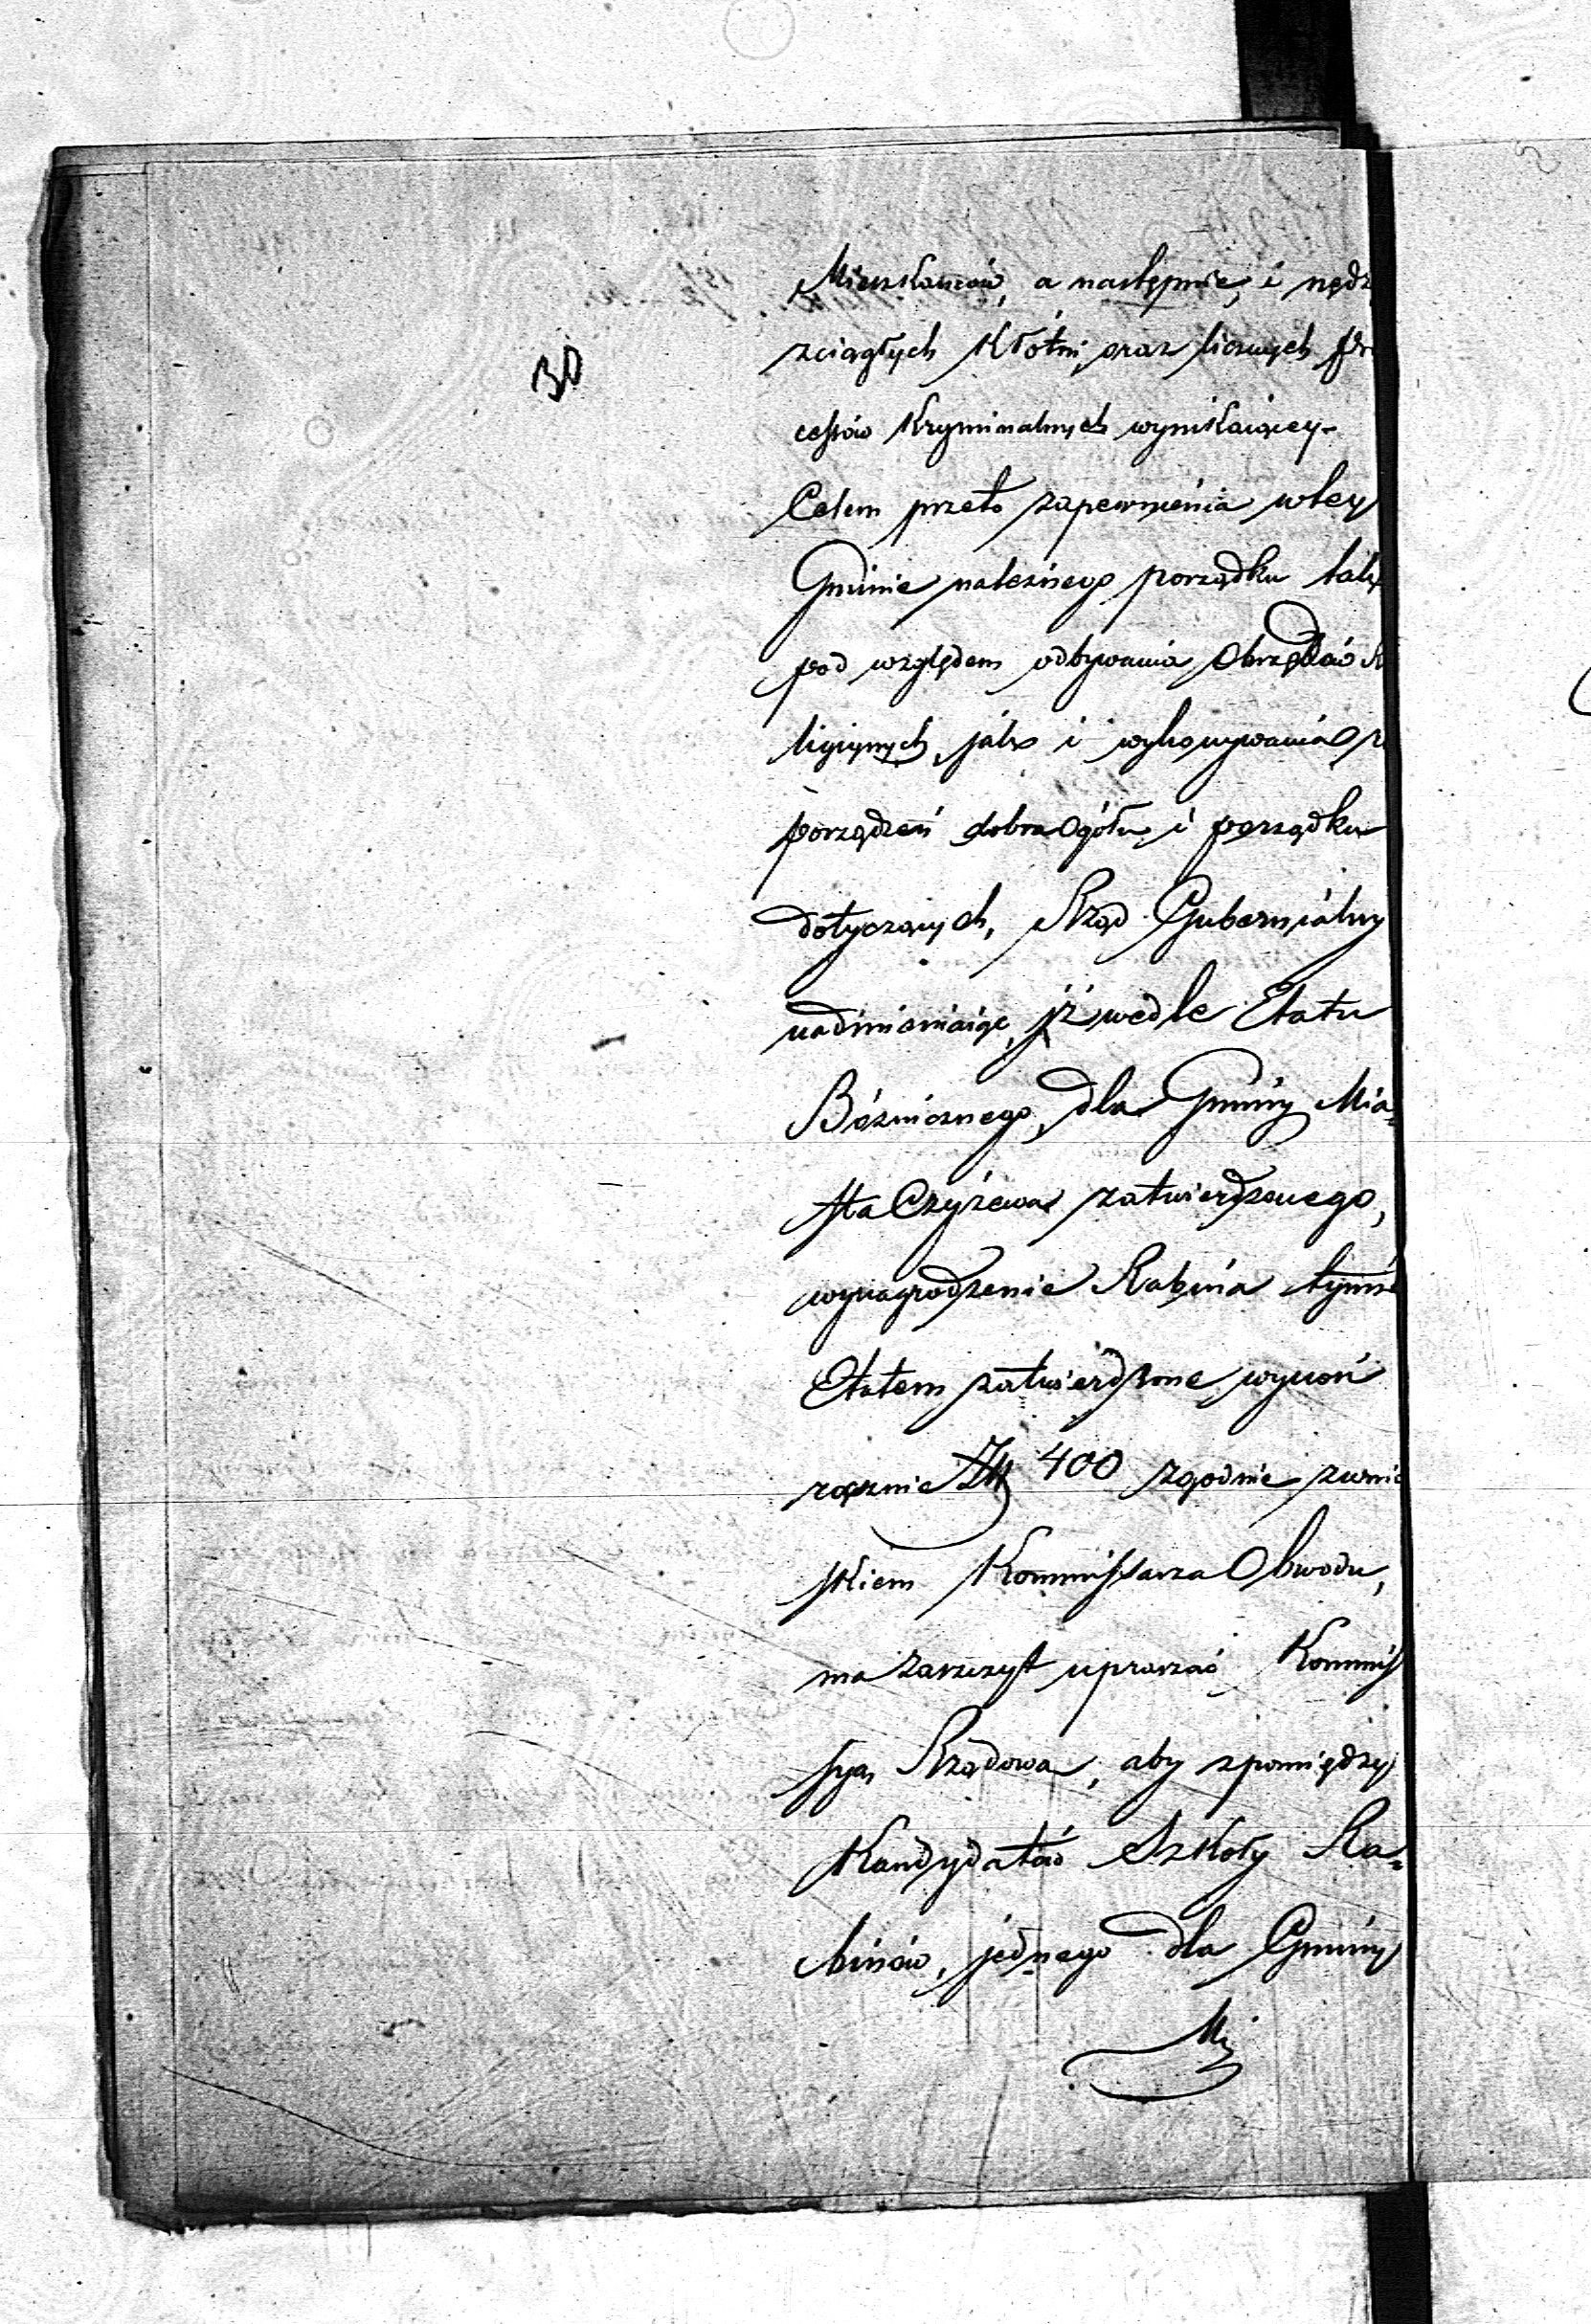 30
Mieszkańców, a następnie, i nędz
zciągłych Kłótni, oraz licznych pro
cessów Kryminalnych wynikaiącey.
Celem przeto zapewnienia wtey
Gminie należnego porządku tak
pod względem odbywania Obrządków Re
ligiynych, jak i wykonywania
porządzeń dobra Ogółu i porządku
dotyczących, Rząd Gubernialny
nadmieniaiąc, iż wedle Etatu
Bóżnicznego, dla Gminy Mia-
sta Czyżewa zatwierdzonego,
wynagrodzenie Rabina tymże
Etatem zatwierdzone wynosi
rocznie Zł 400 zgodnie zwnio
skiem Kommissarza Obwodu,
ma zaszczyt upraszać Kommis
syą Rządową, aby zpomiędzy
Kandydatów Szkoły Ra-
binów, jednego dla Gminy